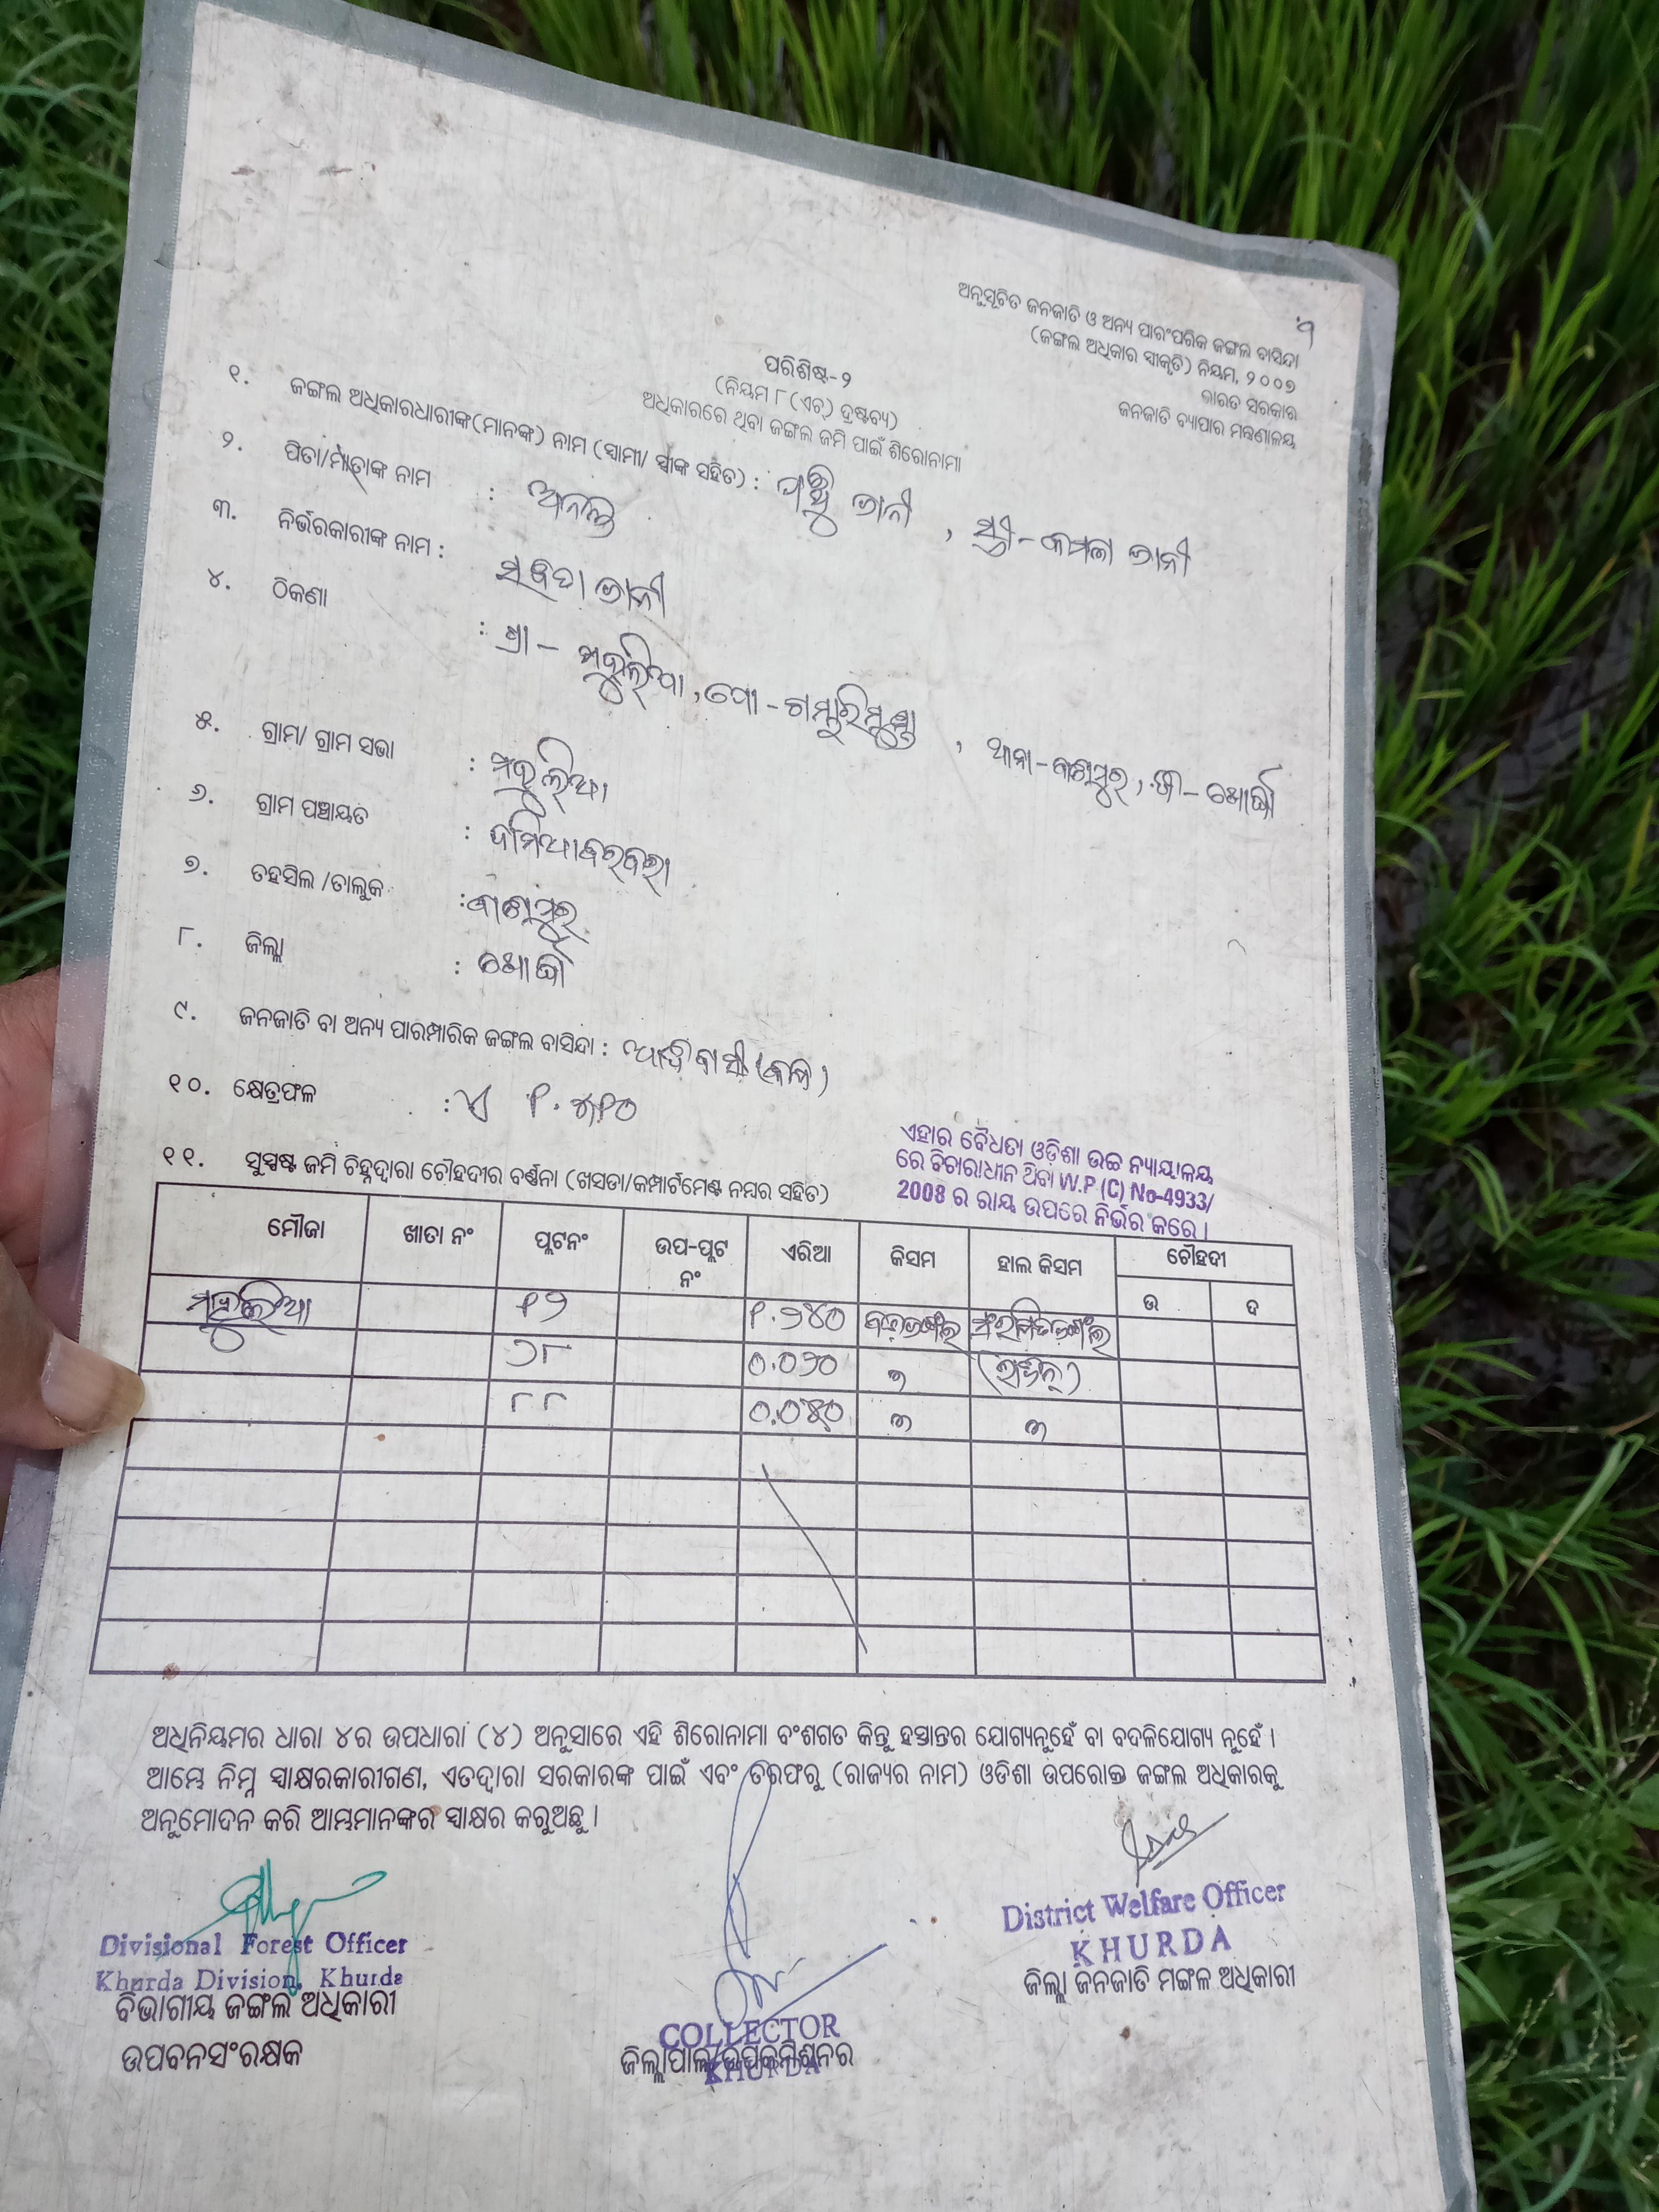 ଅନୁସୂଚିତ ଜନଜାତି ଓ ଅନ୍ୟ ପାରଂପରିକ ଜଙ୍ଗଲ ବାସିନ୍ଦା
(ଜଙ୍ଗଲ ଅଧିକାର ସ୍ୱୀକୃତି) ନିୟମ, ୨୦୦୭
ଭାରତ ସରକାର
ଜନଜାତି ବ୍ୟାପାର ମନ୍ତ୍ରଣାଳୟ
ପରିଶିଷ୍ଟ-୨
(ନିୟମ ୮ (ଏଚ୍) ଦ୍ରଷ୍ଟବ୍ୟ)
ଅଧିକାରରେ ଥିବା ଜଙ୍ଗଲ ଜମି ପାଇଁ ଶିରୋନାମା
୧. ଜଙ୍ଗଲ ଅଧିକାରଧାରୀଙ୍କ(ମାନଙ୍କ) ନାମ (ସ୍ୱାମୀ/ ସ୍ତ୍ରୀଙ୍କ ସହିତ) :
୨. ପିତା/ମାତାଙ୍କ ନାମ : ଆନନ୍ଦ
୩. ନିର୍ଭରକାରୀଙ୍କ ନାମ :
୪. ଠିକଣା : ଗ୍ରା - ମହୁଲିଆ, ପୋ - ଗମ୍ଭାରିମୁଣ୍ଡା, ଥାନା - ବାଣପୁର, ଜି - ଖୋର୍ଦ୍ଧା
୫. ଗ୍ରାମ/ ଗ୍ରାମ ସଭା : ମହୁଲିଆ
୬. ଗ୍ରାମ ପଞ୍ଚାୟତ : ଦମିଆବରବରା
୭. ତହସିଲ /ତାଲୁକ : ବାଣପୁର
୮. ଜିଲ୍ଲା : ଖୋର୍ଦ୍ଧା
୯. ଜନଜାତି ବା ଅନ୍ୟ ପାରମ୍ପାରିକ ଜଙ୍ଗଲ ବାସିନ୍ଦା : ଆଦିବାସୀ
୧୦. କ୍ଷେତ୍ରଫଳ : ଏ
୧୧. ସୁସ୍ପଷ୍ଟ ଜମି ଚିହ୍ନଦ୍ୱାରା ଚୌହଦୀର ବର୍ଣ୍ଣନା (ଖସଡା/କମ୍ପାର୍ଟମେଣ୍ଟ ନମ୍ବର ସହିତ)
ଏହାର ବୈଧତା ଓଡ଼ିଶା ଉଚ୍ଚ ନ୍ୟାୟାଳୟ
ରେ ବିଚାରାଧୀନ ଥିବା W.P (C) No-4933/
2008 ର ରାୟ ଉପରେ ନିର୍ଭର କରେ ।
ମୌଜା ଖାତା ନଂ ପ୍ଲଟନଂ ଉପ-ପ୍ଲଟ ନଂ ଏରିଆ କିସମ ହାଲ କିସମ ଚୌହଦୀ
ଉ ଦ
ମହୁଲିଆ ୧୨ ୧.୨୪୦
୦.୦୨୦
୮୮
ଅଧିନିୟମର ଧାରା ୪ର ଉପଧାରା (୪) ଅନୁସାରେ ଏହି ଶିରୋନାମା ବଂଶଗତ କିନ୍ତୁ ହସ୍ତାନ୍ତର ଯୋଗ୍ୟନୁହେଁ ବା ବଦଳିଯୋଗ୍ୟ ନୁହେଁ ।
ଆମ୍ଭେ ନିମ୍ନ ସ୍ୱାକ୍ଷରକାରୀଗଣ, ଏତଦ୍ୱାରା ସରକାରଙ୍କ ପାଇଁ ଏବଂ ତରଫରୁ (ରାଜ୍ୟର ନାମ) ଓଡିଶା ଉପରୋକ୍ତ ଜଙ୍ଗଲ ଅଧିକାରକୁ
ଅନୁମୋଦନ କରି ଆମ୍ଭମାନଙ୍କର ସ୍ୱାକ୍ଷର କରୁଅଛୁ ।
Divisional Forest Officer
Khurda Division, Khurda
ବିଭାଗୀୟ ଜଙ୍ଗଲ ଅଧିକାରୀ
ଉପବନସଂରକ୍ଷକ
COLLECTOR
KHURDA
ଜିଲ୍ଲାପାଳ/ଉପକମିଶନର
District Welfare Officer
KHURDA
ଜିଲ୍ଲା ଜନଜାତି ମଙ୍ଗଳ ଅଧିକାରୀ